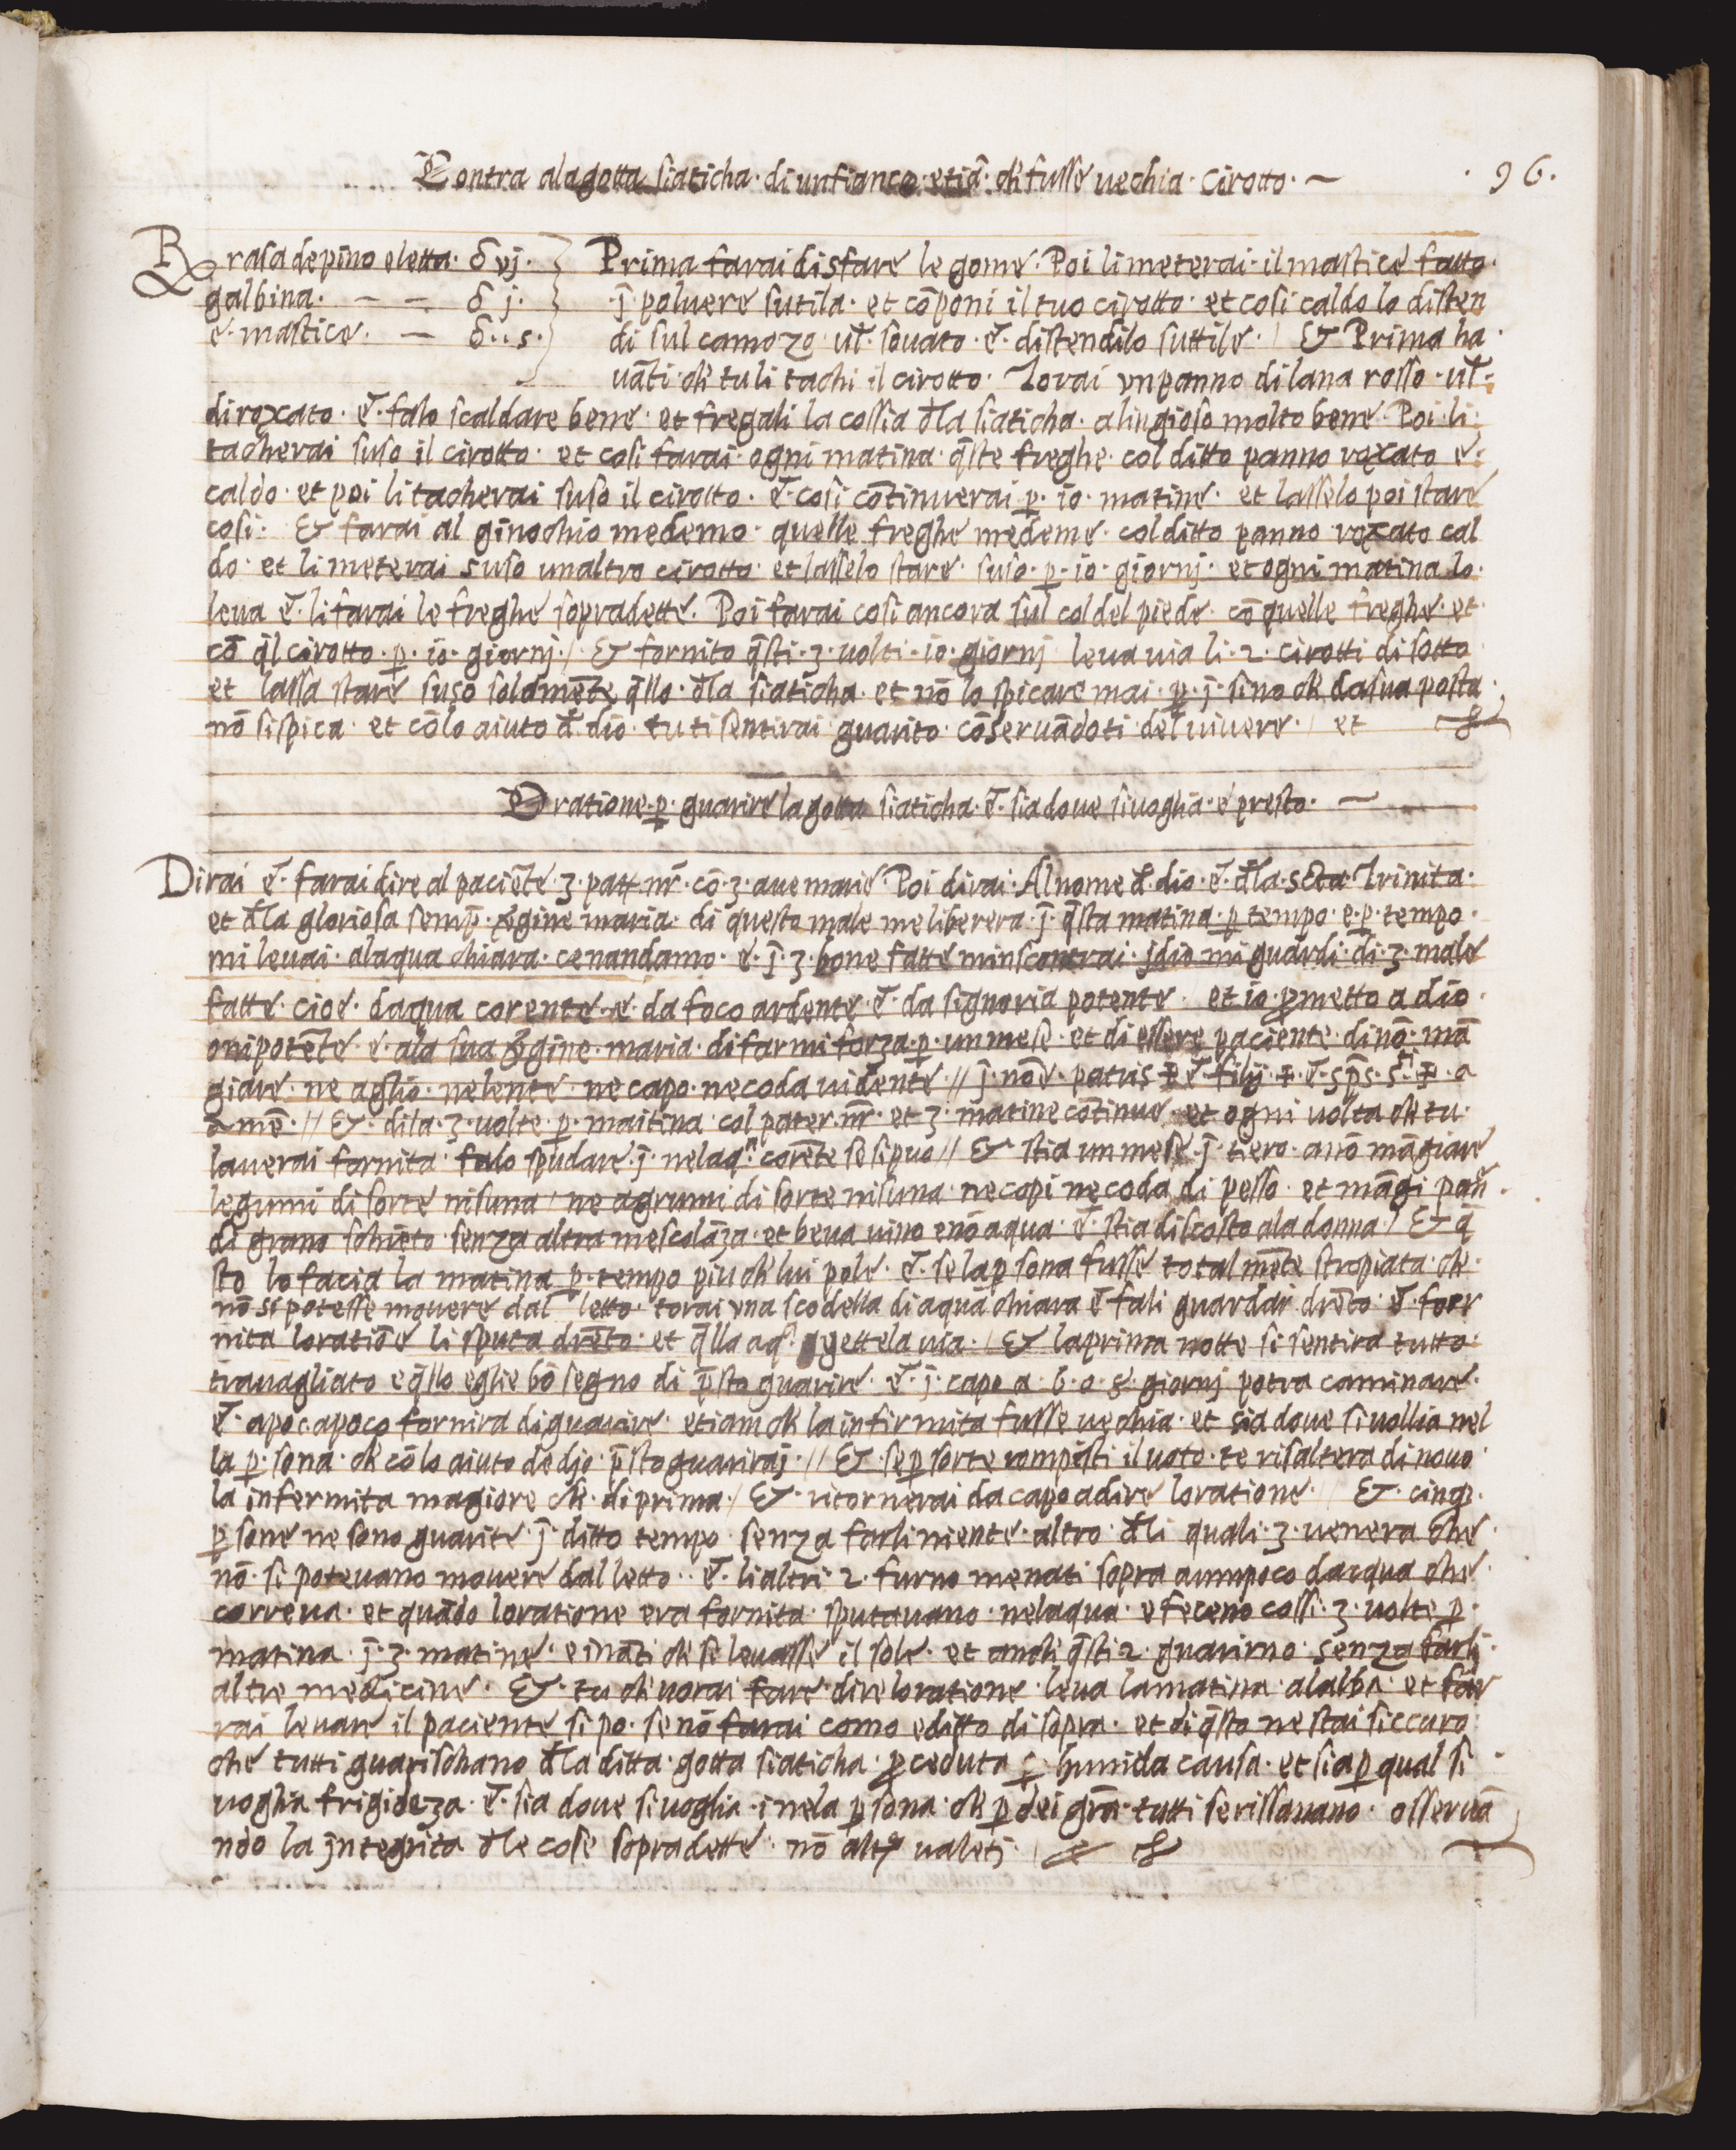 Contra alagotta siaticha · di un fianco · etiã · ch̃ fusse uechia · cirotto ·
· 96 ·
℞ rasa de pino eletta · δ vj ·
galbina · — — δ j ·
e · mastice · — δ · · s ·
Prima farai disfare le gome · Poi li meterai · il mastice fatto ·
· j̃ poluere sutila · et cõponi il tuo cirotto · et cosi caldo lo disten
di sul camozo · ul̃ · souato · e · distendilo suttile · / & Prima ha ·
uãti · ch̃ tu li tachi il cirotto · Torai vn panno di lana rosso · ul̃ ·
di roxato · e · falo scaldare bene · et fregali la cossia d̃la siaticha · alingioso molto bene · Poi · li ·
tacherai suso il cirotto · et cosi farai · ogni matina · q̃ste freghe · col ditto panno roxato e ·
caldo · et poi li tacherai suso il cirotto · e · cosi cõtinuerai p̱ · io · matine · et lasselo poi stare
cosi · & farai al ginochio medemo · quelle freghe medeme · col ditto panno roxato cal
do · et li meterai suso unaltro cirotto · et lasselo stare · suso · p̱ · io · giornj · et ogni matina lo ·
leua e · li farai le freghe sopradette · Poi farai cosi ancora sul col del piede · cõ quelle freghe · et ·
cõ q̃l cirotto · p̱ · io · giornj · / & fornito q̃sti · 3 · uolti · io · giornj leua uia li · 2 · cirotti di sotto
et lassa stare suso solamẽte q̃llo · d̃la siaticha · et nõ lo spicare mai · p̱ · j̃ · sino ch̃ da sua posta ·
nõ si spica · et cõ lo aiuto d̃ · dio · tu ti sentirai guarito · cõseruãdoti del uiuere · / et
Oratione · p̱ · guarire la gotta siaticha · e · sia doue si uoglia · e presto ·
Dirai e · farai dire al paciẽte · 3 · patt nr̃ · cõ · 3 · aue marie · Poi dirai · Al nome d̃ · dio · e · d̃la · scta Trinita ·
et d̃la gloriosa semp̃ · ṽgine maria · di questo male me liberera · j̃ · q̃sta matina · p̱ tempo · e · p̱ · tempo ·
mi leuai · alaqua chiara · cenandamo · e · j̃ · 3 · bone fatte minscontrai · jdio mi guardi · di · 3 · male
fatte · cioe · daqua corente · e · da foco ardente · e · da signoria potente · et io p̱metto a dio ·
onipotẽte · e · ala sua ṽgine · maria · di far mi forza · p̱ · un mese · et di essere paciente · di nõ · mã
giare · ne aglio · ne lente · ne capo · ne coda uidente · // j̃ · nõe · patris ✠ e · filij · ✠ · e · sp̃s · s.ti · ✠ · a
a mẽ · // & · dila · 3 · uolte · p̱ · maitina col pater · nr̃ · et 3 · matine cõtinue · et ogni uolta ch̃ tu ·
lauerai fornita · falo spudare · j̃ · nelaq.a corẽte se si puo // & stia un mese · j̃ · tiero · a nõ mãgiare
legumi di sorte nisuna / ne agrumi di sorte nisuna · ne copi ne coda di pesso · et mãgi pañ ·
di grano schieto · senza altra mescolãza · et beua uino e nõ aqua · e · stia discosto ala donna / & q̃
sto lo facia la matina p̱ · tempo piu ch̃ lui pole · e · se la p̱sona fusse totalmẽte stropiata · ch̃ ·
nõ si potesse mouere dal letto · torai vna scodella di aqua chiara e fali guardar drẽto · e · forr
nita loratiõe li sputa drẽto · et q̃lla aq.a gettela uia · / & la prima notte si sentira tutto ·
trauagliato e q̃llo eglie bõ segno di p̃sto guarire · e · j̃ · capo a · 6 · o · 8 · giornj potra caminare ·
e · apoc apoco fornira di guarire · etiam ch̃ la infirmita fusse uechia · et sia doue si uollia nel
la p̱ · sona · ch̃ cõ lo aiuto de djo · p̃sto guarirai · // & · se p̱ sorte rompisti il uoto · te risaltera di nouo ·
la infermita magiore ch̃ · di prima · / & · ritornerai da capo a dire loratione · / & · cinq̃ ·
p̱sone ne sono guarite · j̃ · ditto tempo · senza farli niente · altro · d̃li quali · 3 · uenera che ·
nõ · si poteuano mouere dal letto · · e · li altri · 2 · furno menati sopra aunnpoco dacqua che ·
correua · et quãdo loratione era fornita · sputauano · nelaqua · e feceno cossi · 3 · uolte p̱ ·
matina · j̃ · 3 · matine · e inãti ch̃ se leuasse il sole · et anch̃ q̃sti 2 · guarirno · senza farli ·
altre medicine · & · tu ch̃ uorai fare dire loratione · leua la matina · alalba · et far
rai leuare il paciente si po · se nõ farai como e ditto di sopra · et di q̃sto ne stai siccuro ·
che tutti guarischano d̃la ditta · gotta siaticha · p̱ceduta p̱ humida causa · et sia p̱ qual si ·
uoglia frigideza · e · sia doue si uoglia · i nela p̱sona · ch̃ p̱ dei grã · tutti se rissanano · osseruã
ndo la jntegrita d̃le cose sopradette · nõ alt̃r ualetj ·